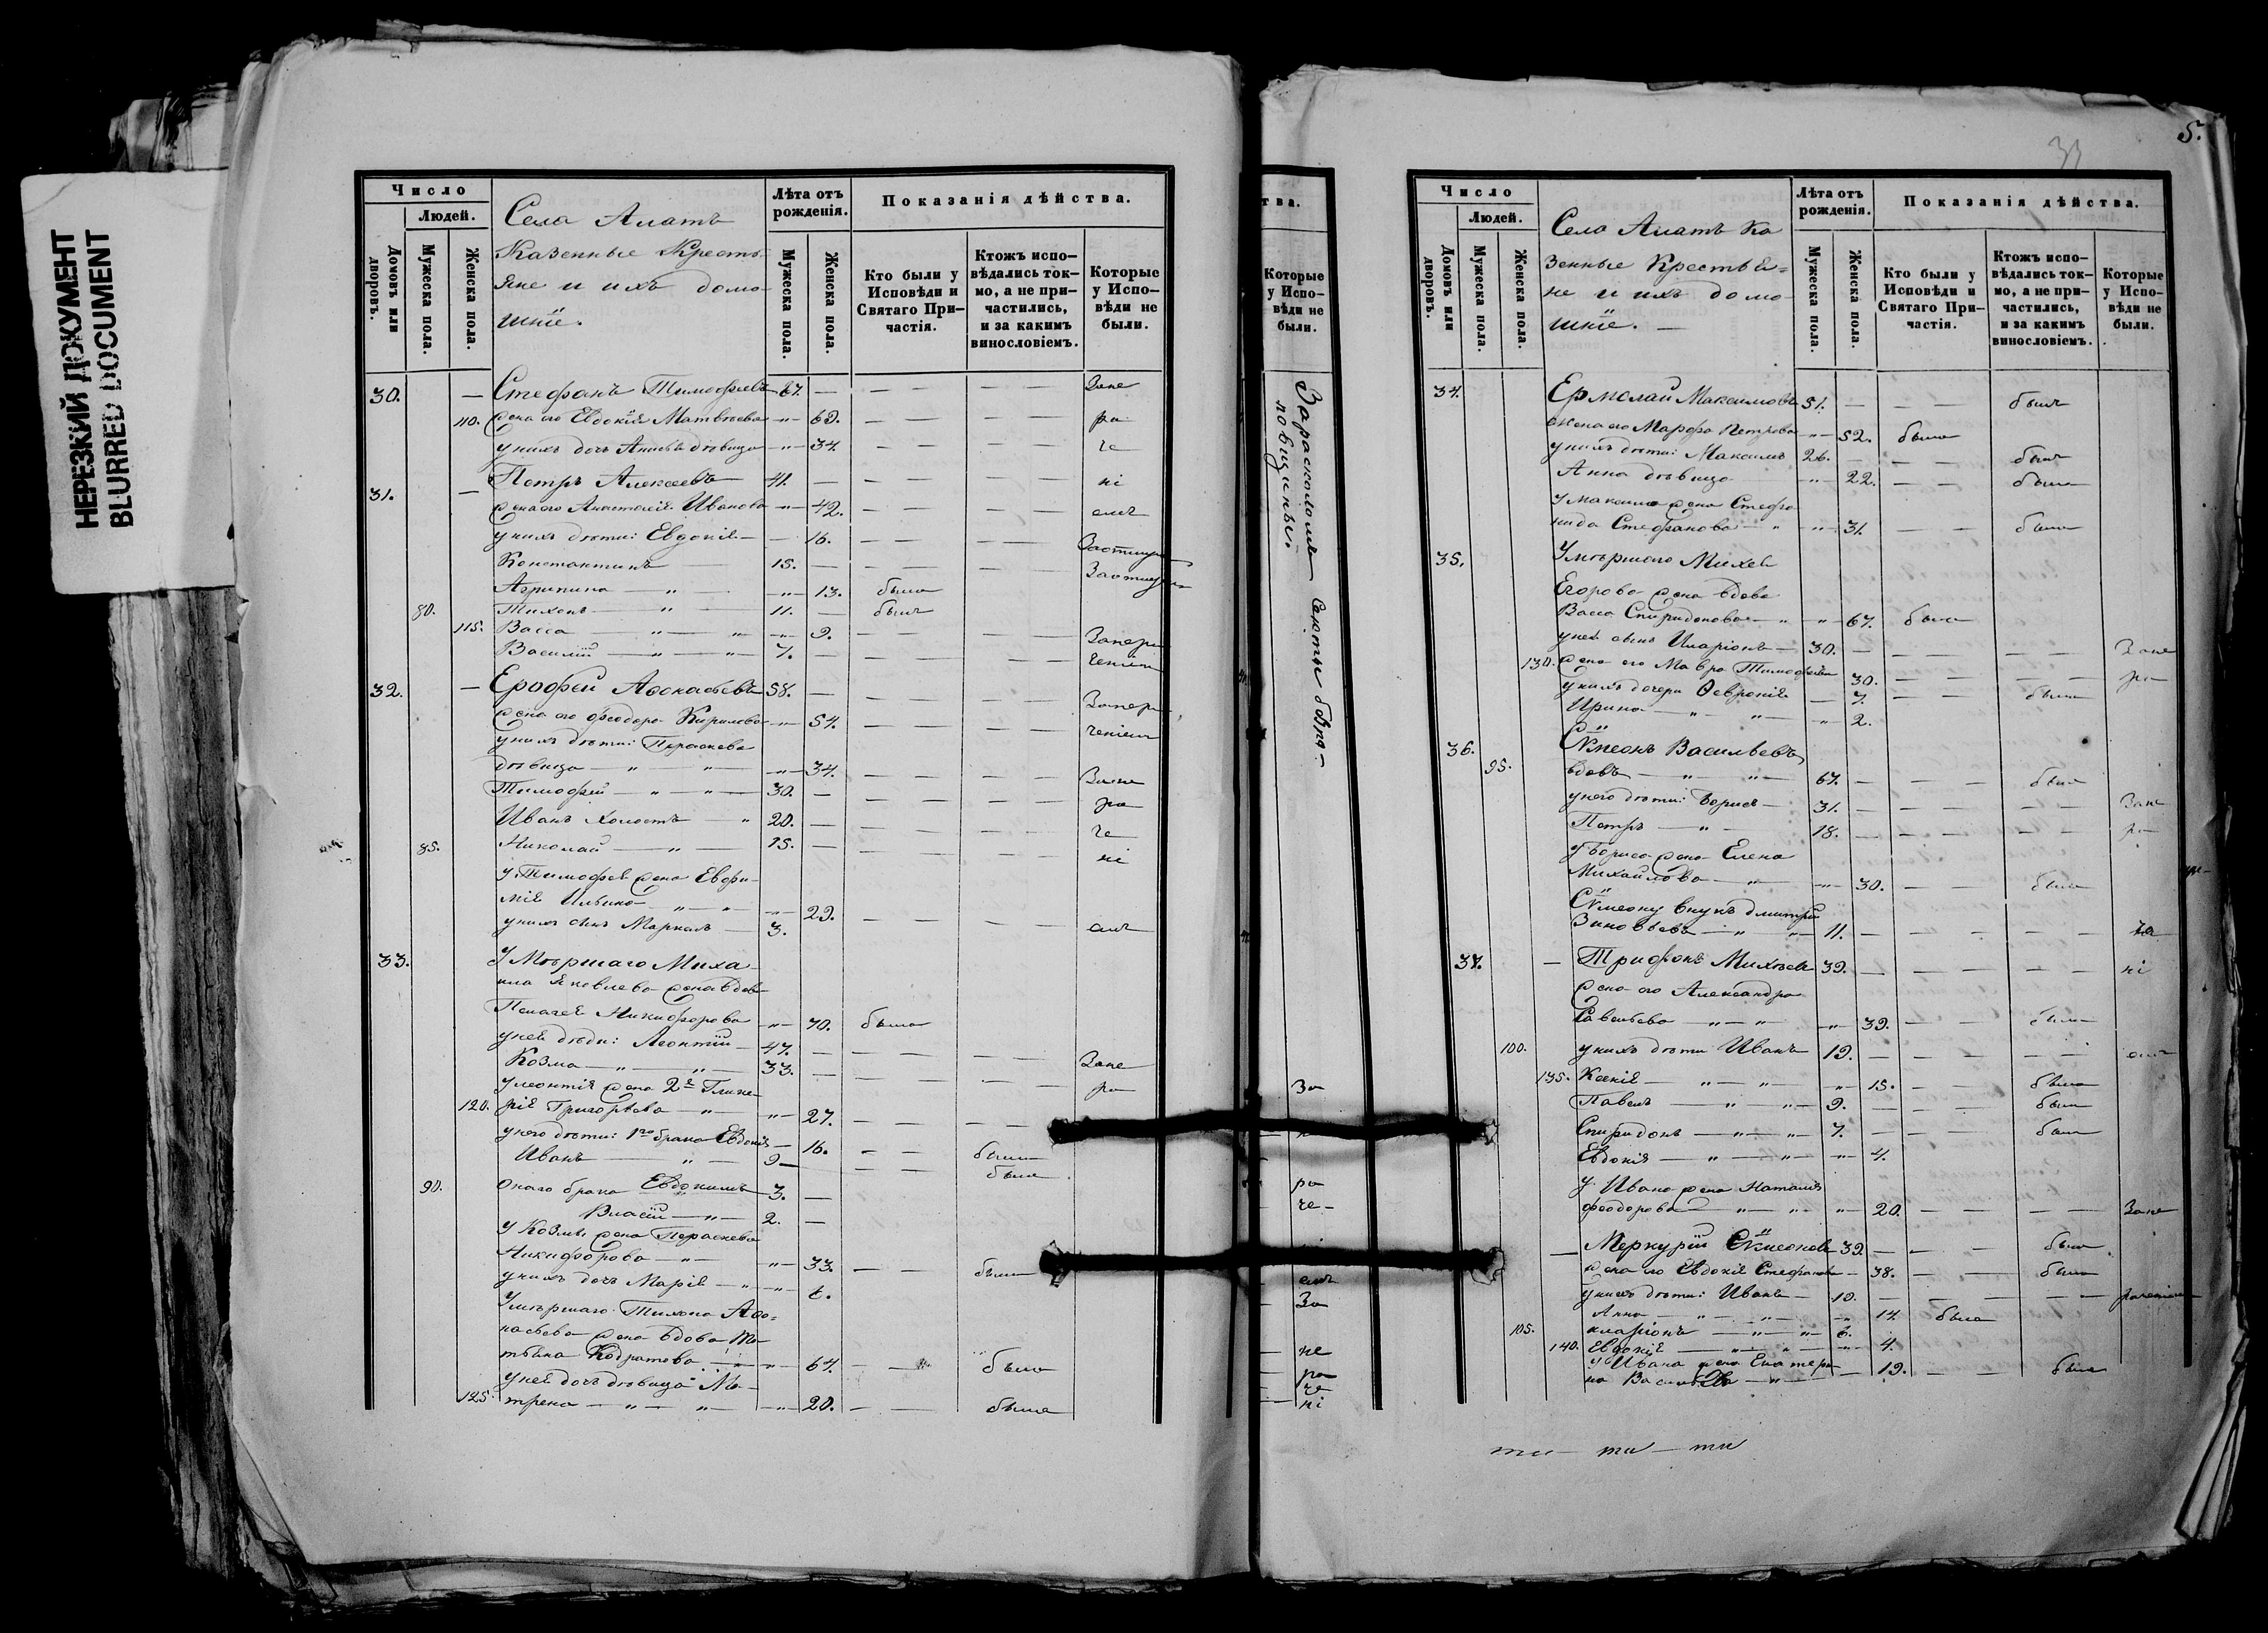 НЕРЕЗКИЙ ДОКУМЕНТ
BLURRED DOCUMENT
Число
Людей.
Домовъ или дворовъ.
Мужеска пола.
Женска пола.
Села Алатъ
Казенные Кресть-
яне и ихъ домо-
шніе.
Лѣта отъ рожденія.
Мужеска пола.
Женска пола.
Показанія дѣйства.
Кто были у Исповѣди и Святаго При-частія.
Ктожъ испо-вѣдались ток-мо, а не при-частились, и за какимъ винословіемъ.
Которые у Испо-вѣди не были.
30. — Стефанъ Тимофеевъ 67. — — — — — Зане
110. жена его Евдокія Матвѣева — 69. — — — — ра
у нихъ дочь Анисья дѣвица — 34 — — — — че
31. — Петръ Алексеевъ 41. — — — — — ні
жена его Анастасія Иванова — 42. — — — — емъ
у нихъ дѣти: Евдокія — — 16. — — — —
Константинъ — 15. — — — — —
Агрипина — — 13. была
80. Тихонъ — 11. — былъ
115. Васса — — 9. — — — — Запира
Василій — 7. — — — — —
32. — Ерофей Афонасьевъ 58. — — — — —
жена его Феодора Кирилова — 54. — — — —
у нихъ дѣти: Параскева
дѣвица — — 34. — — — — Зане
Тимофей — 30. — — — — — ра
Иванъ холостъ — 20. — — — — — че
85. Николай — 15. — — — — — ні
у Тимофея жена Евфи-
мія Ильина — — 29. — — — — емъ
у нихъ сынъ Маркелъ — 3.
33. Умѣршаго Миха-
ила Яковлева жена вдова
Пелагея Никифорова — 70. была
у ней дѣти: Леонтій — 47. — — — — — Зане
Козма — 33. — — — — — ра
у Леонтія жена 2я Глике-
120. рія Григорьева — — 27. — — — —
у него дѣти: 1го брака Евдокія — 16. — — была
Иванъ — 9 — — — былъ
90. Онаго брака Евдокимъ 3. —
Власій — 2. —
у Козмы жена Параскева
Никифорова — — 33. — — была
у нихъ дочь Марія — — 6.
Умѣршаго Тихона Афо-
насьева жена вдова Та-
тьяна Кодратова — — 64. — — была
у ней дочь дѣвица Ма-
125. трена — — 20. — — была
тва.
Которые у Испо-вѣди не были.
За расколомъ Секты безпо-
повщины.
За
ра
че-
емъ
За
не
ра
че
ні
33
5.
Число
Людей.
Домовъ или дворовъ.
Мужеска пола.
Женска пола.
Села Алатъ Ка
зенные Крестья=
не и ихъ домо-
шніе. —
Лѣта отъ рожденія.
Мужеска пола.
Женска пола.
Показанія дѣйства.
Кто были у Исповѣди и Святаго При-частія.
Ктожъ испо-вѣдались ток-мо, а не при-частились, и за какимъ винословіемъ.
Которые у Испо-вѣди не были.
34. Ермолай Максимовъ 51. — — — былъ
жена его Марфа Петрова — 52. была
у нихъ дѣти: Максимъ 26. — — — былъ
Анна дѣвица — 22. — — была
у Максима жена Стефа
нида Стефанова — — 31. — — была
35. Умѣршаго Михея
Егорова жена вдова
Васса Спиридонова — — 67. была
у ней сынъ Иларіонъ — 30. — — — — — Зане
130. жена его Мавра Тимофеева 30. — — — — ра
у нихъ дочери Феврония — 7. — — была
Ирина — — 2.
36. Сѵмеонъ Васильевъ
95. вдовъ — 67. — — — былъ
у него дѣти: Борисъ — 31. — — — — — Зане
Петръ — 18. — — — — — ра
у Бориса жена Елена
Михайлова — — 30. — — была
Сѵмеону внукъ Дмитрій
Зиновьевъ — 11. — — — — — че
37. — Трифонъ Михѣевъ 39. — — — — — ні
жена его Александра
Савельева — — 39. — — была
100. у нихъ дѣти Иванъ 19. — — — — — емъ
135. Ксенія — — 15. — — была
Павелъ — 9. — — — былъ
Спиридонъ — 7. — — — былъ
Евдокія — — 4.
у Ивана жена Наталія
Феодорова — — 20. — — — — Зане
— Меркурій Сѵмеоновъ 39. — — — былъ
жена его Евдокія Стефанова — 38. — — была
у нихъ дѣти: Иванъ — 19. — — — — — раченіемъ
Анна — — 14. была
105. Иларіонъ — 6.
140. Евдокія — — 4.
у Ивана жена Екатери
на Васильева — — 19. — — была
ти — ти — ти